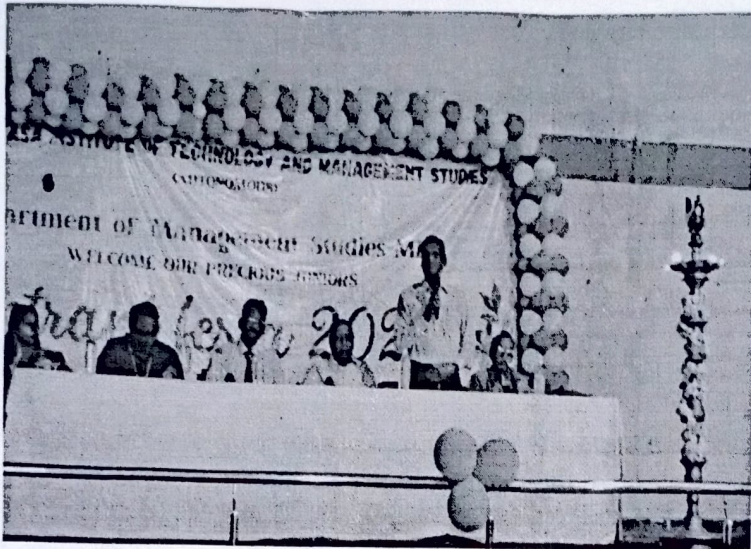 INSTITUTE OF TECHNOLOGY AND MANAGEMENT STUDIES
(AUTONOMOUS)
artment of Management Studies M
WELCOME OUR PRECIOUS JUNIORS
202